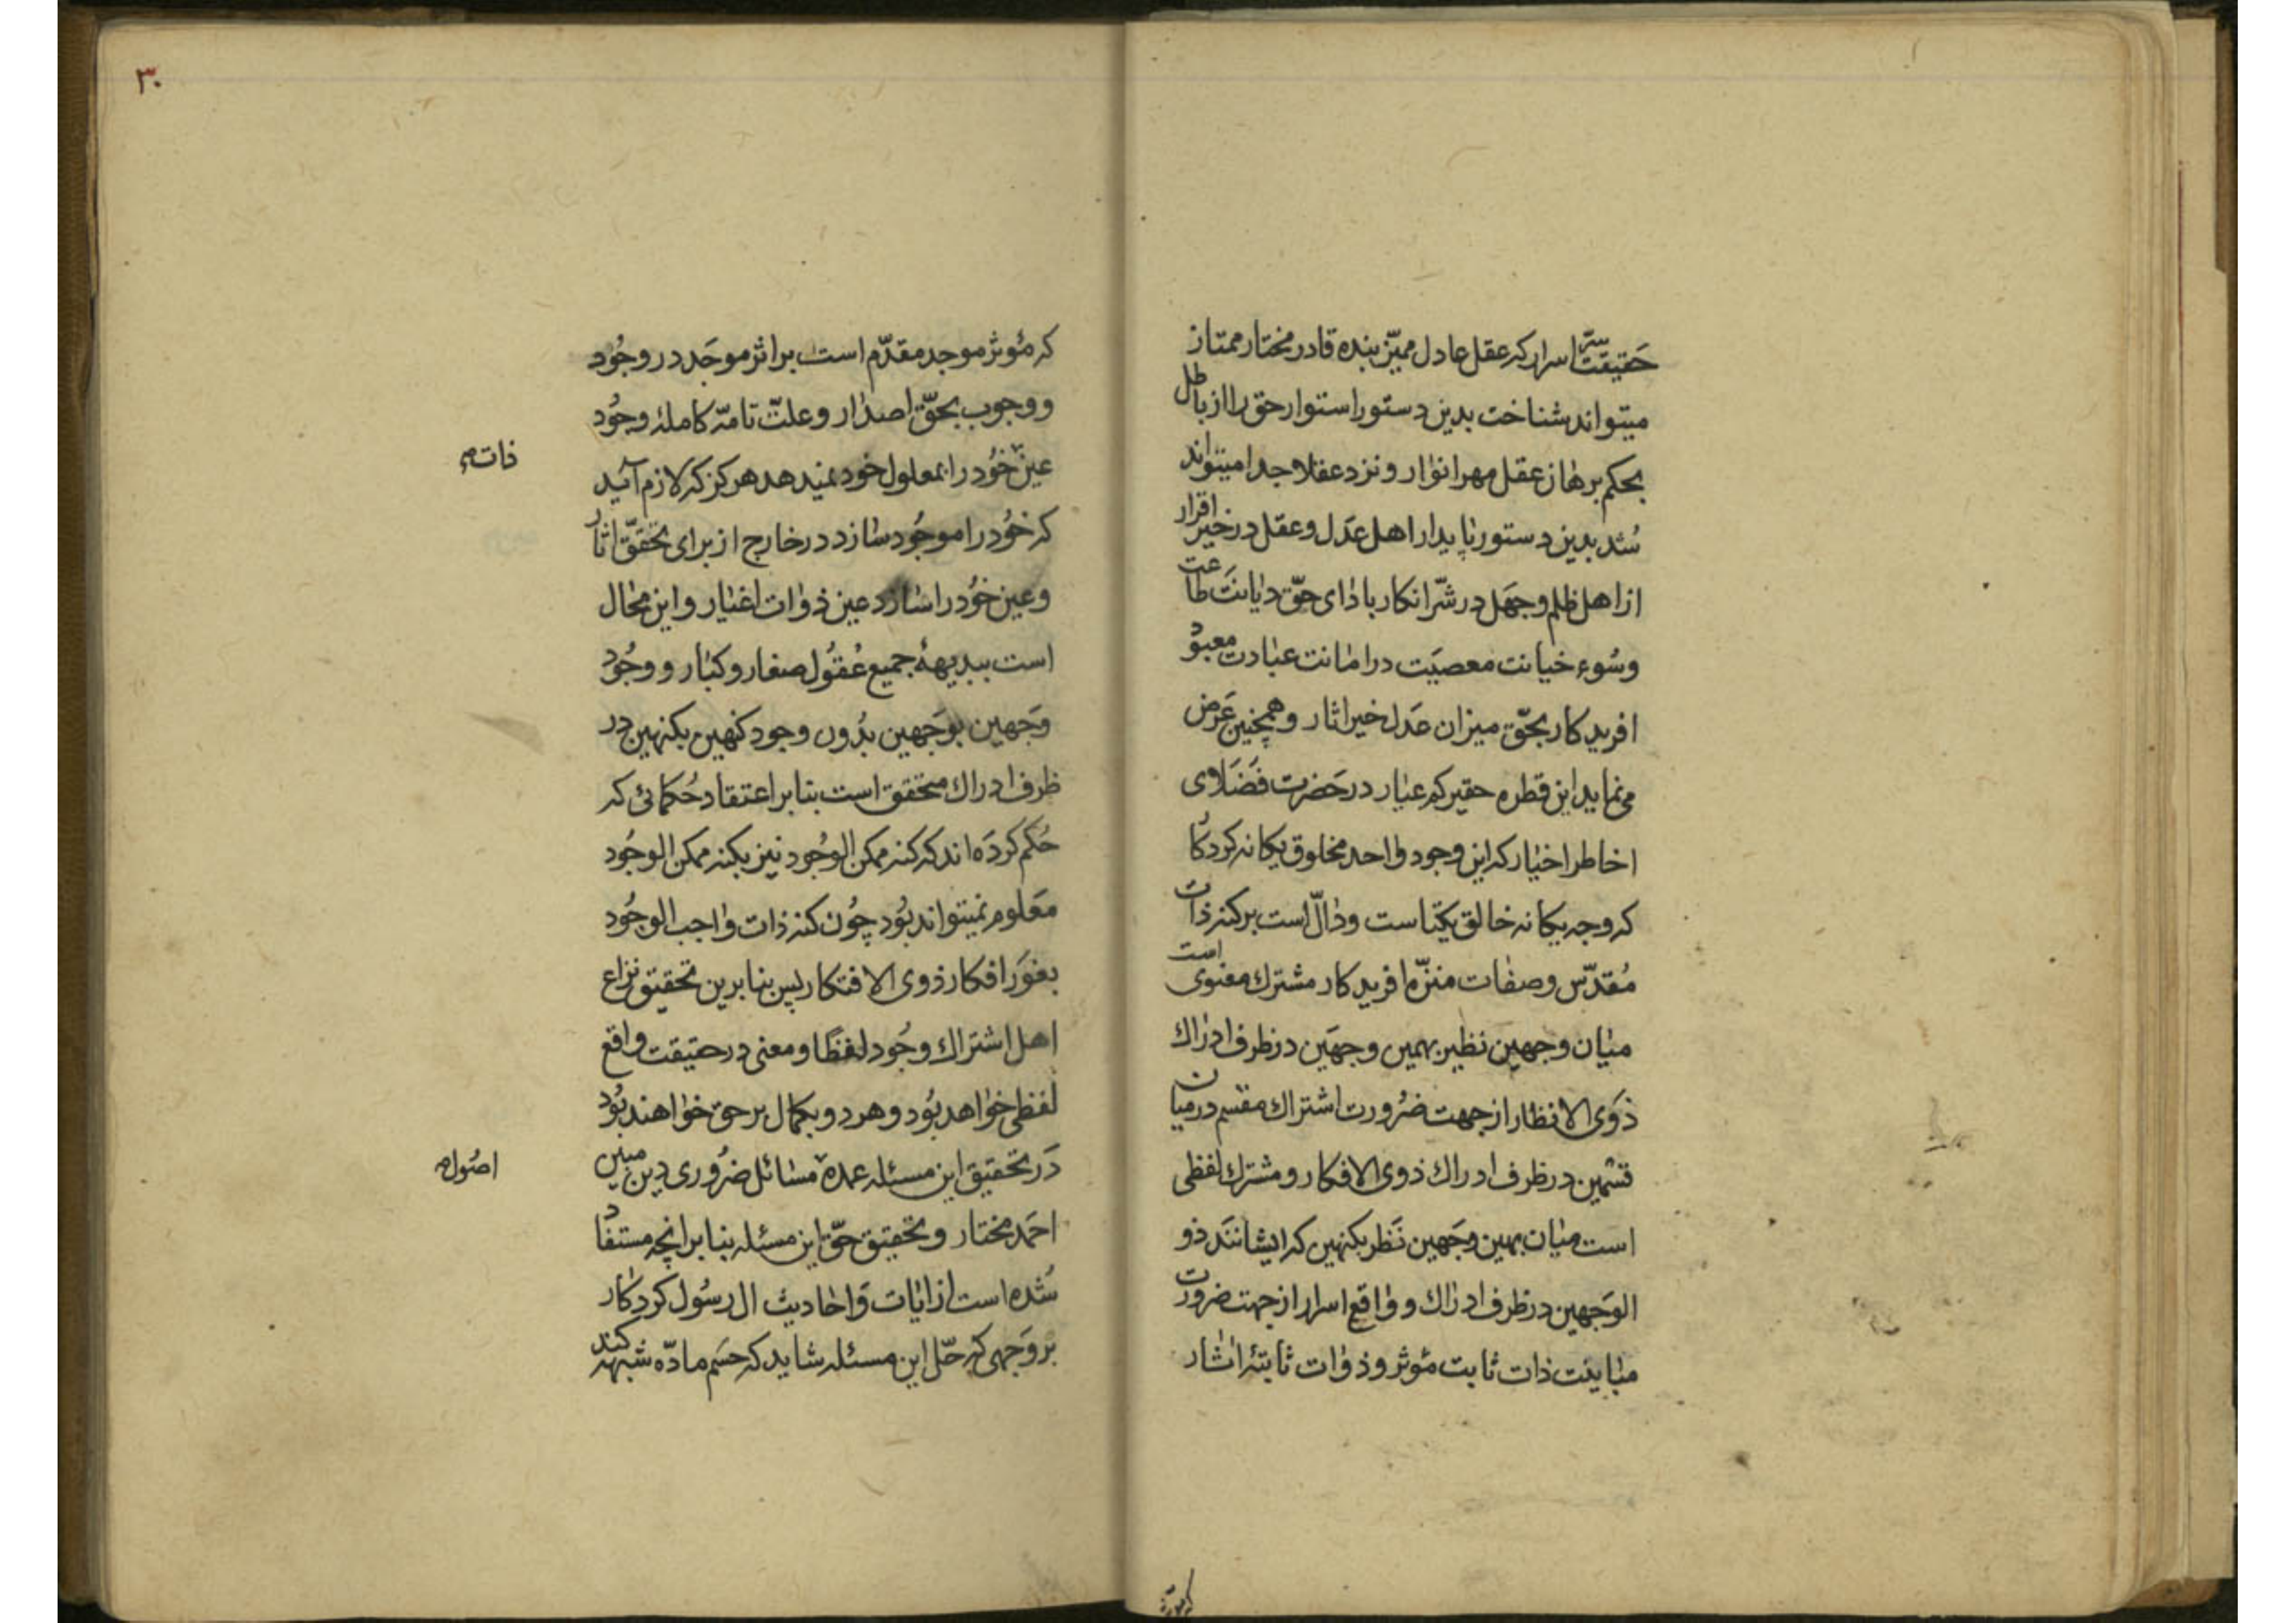 حقیقت سرّ اسرار که عقل عادل ممیّز بنده قادر مختار ممتاز
میتواند شناخت بدین دستور استوار حق را از باطل
بحکم برهان عقل مهر انوار و نزد عقلا جدا میتواند
شد بدین دستور پایدار اهل عدل و عقل در خیر اقرار
از اهل ظلم و جهل در شرّ انکار با دای حقّ دیانت طاعت
و سُوء خیانت معصیت در امانت عبادت معبود
افریدکار بحقّ میزان عدل خیر اثار و همچنین عرض
می نماید این قطره حقیر کم عیار در حضرت فضلای
اخاطر اخیار که این وجود واحد مخلوق یکانه کردکار
که وجه یکانه خالق یکتاست و دالّ است بر کنه ذات
مُقدّس و صفات منزّه افریدکار مشترك معنوی است
میان وجهین نظیر بهمین وجهین در ظرف ادراك
ذوی الانظار از جهت ضرورت اشتراك مقسم در میان
قسمین در ظرف ادراك ذوی الافکار و مشترك لفظی
است میان بهمین وجهین نظر بکنهین که ایشانند ذو
الوجهین در ظرف ادراك و واقع اسرار از جهت ضرورت
مباینت ذات ثابت مُوثر و ذوات ثابتهٔ اثار
که مُوثر
۳۰
که مُوثر موجد مقدّم است بر اثر موجَد در وجُود
و وجوب بحقّ اصدار و علّت تامّه کاملهٔ وجُود
عین خُود را بمعلول خود نمیدهد هرکز که لازم آید
ذات
که خُود را موجُود سازد در خارج از برای تحقّق اثار
و عین خُود را سازد عین ذوات اغیار و این محال
است ببدیههٔ جمیع عُقول صغار و کبار و وجُود
وَجهین بوَجهین بدُون وجود کنهین بکنهین در
ظرف ادراك متحقق است بنا بر اعتقاد حُکمائی که
حُکم کردَه اند که کنه ممکن الوجُود نیز بکنه ممکن الوجُود
مَعلوم نمیتواند بُود چُون کنه ذات واجب الوجُود
بغَور افکار ذوی الافتکار پس بنا برین تحقیق نزاع
اهل اشتراك وجُود لفظًا و معنی در حقیقت واقع
لفظی خواهد بُود و هر دو بکمال بر حق خواهند بُود
دَر تحقیق این مسئله عمدهٔ مسائل ضرُوری دین مبین
اصُول
احمَد مختار و تحقیق حقّ این مسئله بنا بر انچه مستفاد
شُده است از ایات وَ احادیث ال رسُول کردکار
بر وَجهی که حلّ این مسئله شاید که حسم مادّه شبهه کند